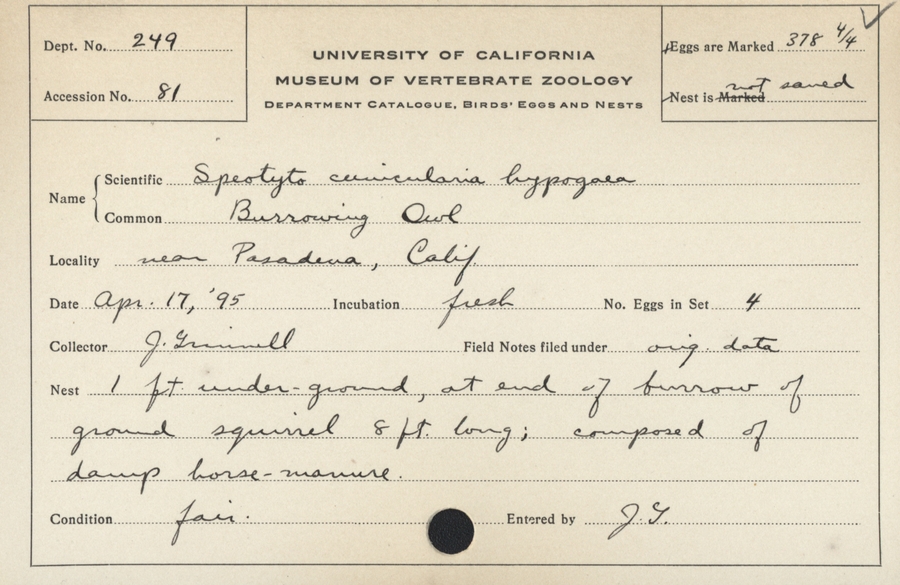 Dept. No. 249
Accession No. 81
UNIVERSITY OF CALIFORNIA
MUSEUM OF VERTEBRATE ZOOLOGY
DEPARTMENT CATALOGUE, BIRDS' EGGS AND NESTS
Eggs are Marked 378 4/4
Nest is Marked not saved
Name
Scientific Speotyto cunicularia hypogaea
Common Burrowing Owl
Locality near Pasadena, Calif.
Date Apr. 17, '95 Incubation fresh No. Eggs in Set 4
Collector J. Grinnell Field Notes filed under orig. data
Nest 1 ft. under-ground, at end of burrow of
ground squirrel 8 ft. long; composed of
damp horse-manure.
Condition fair. Entered by J.G.